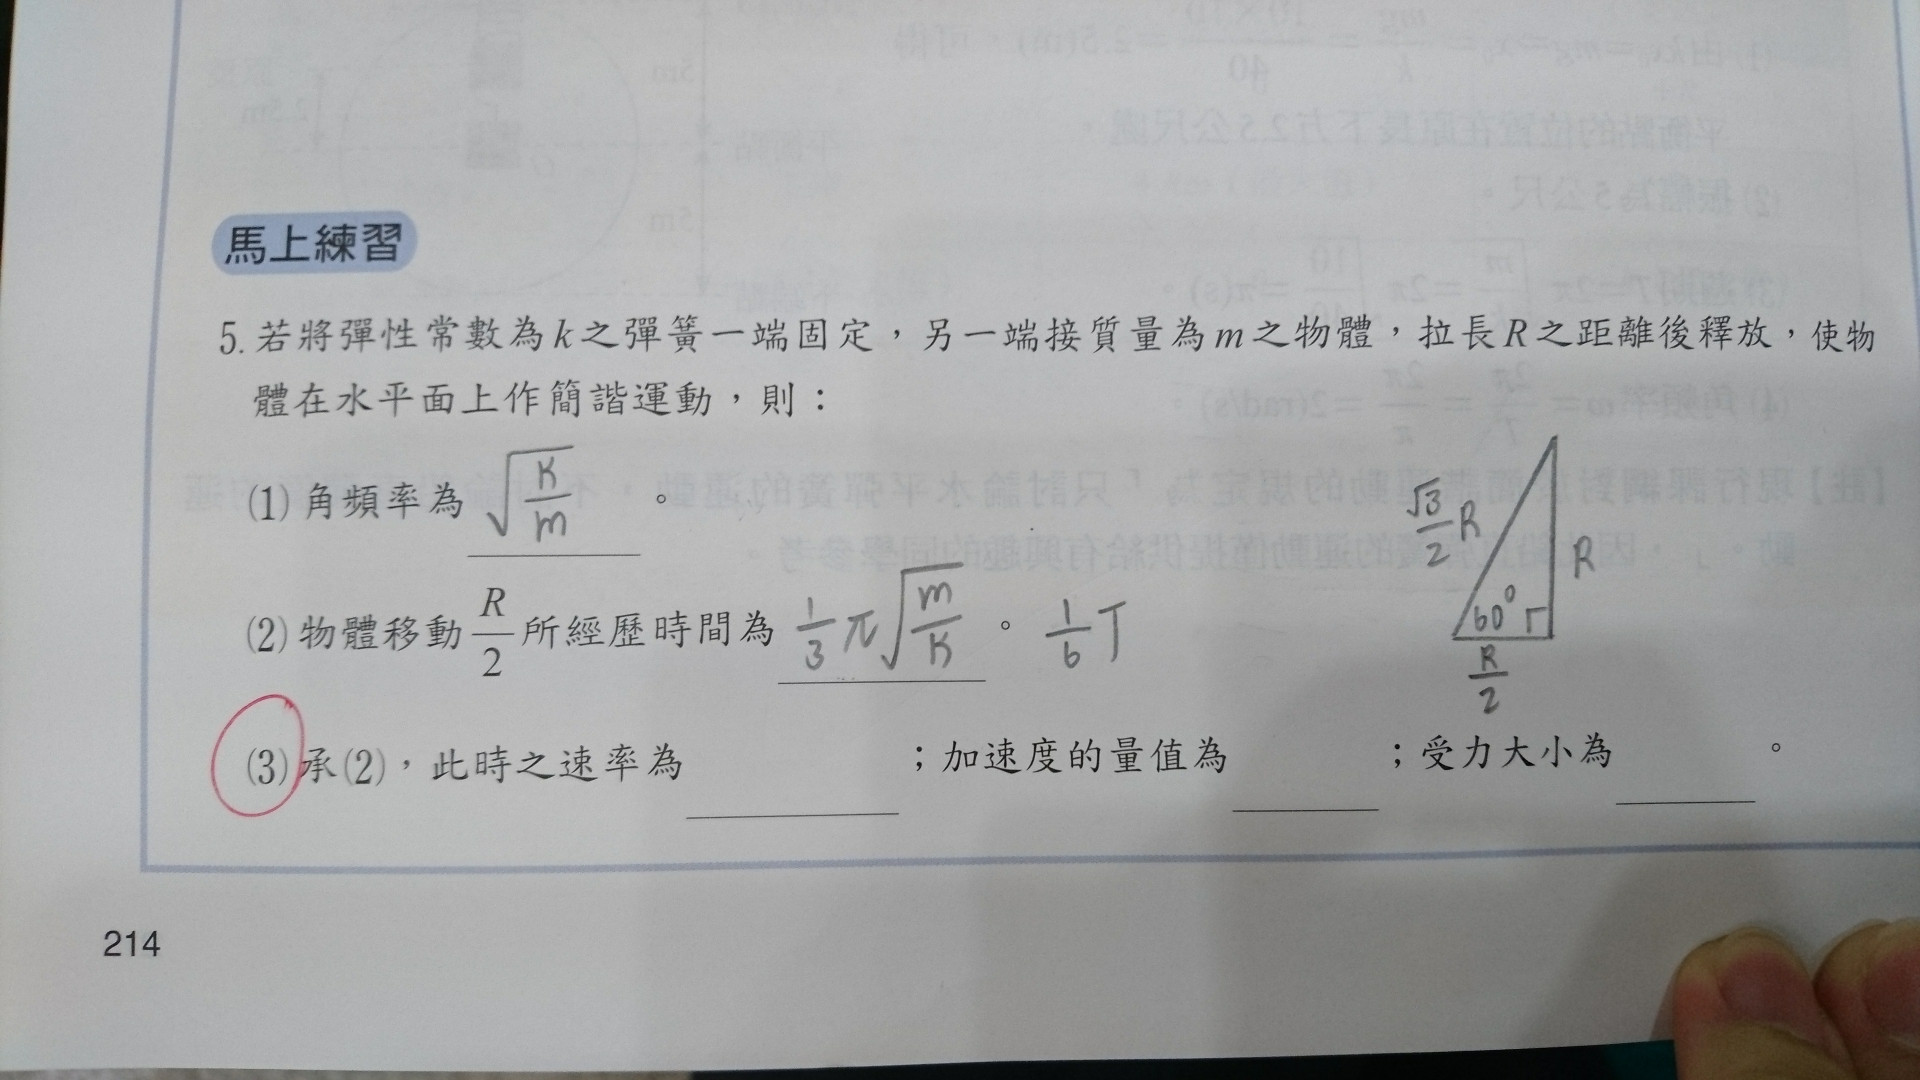 馬上練習
5. 若將彈性常數為k之彈簧一端固定，另一端接質量為m之物體，拉長R之距離後釋放，使物
體在水平面上作簡諧運動，則：
(1) 角頻率為 √(K/m) 。
(2) 物體移動 R/2 所經歷時間為 1/3 π√(m/K) 。 1/6 T
(3) 承(2)，此時之速率為 ；加速度的量值為 ；受力大小為 。
√3/2 R
R
60°
R/2
214